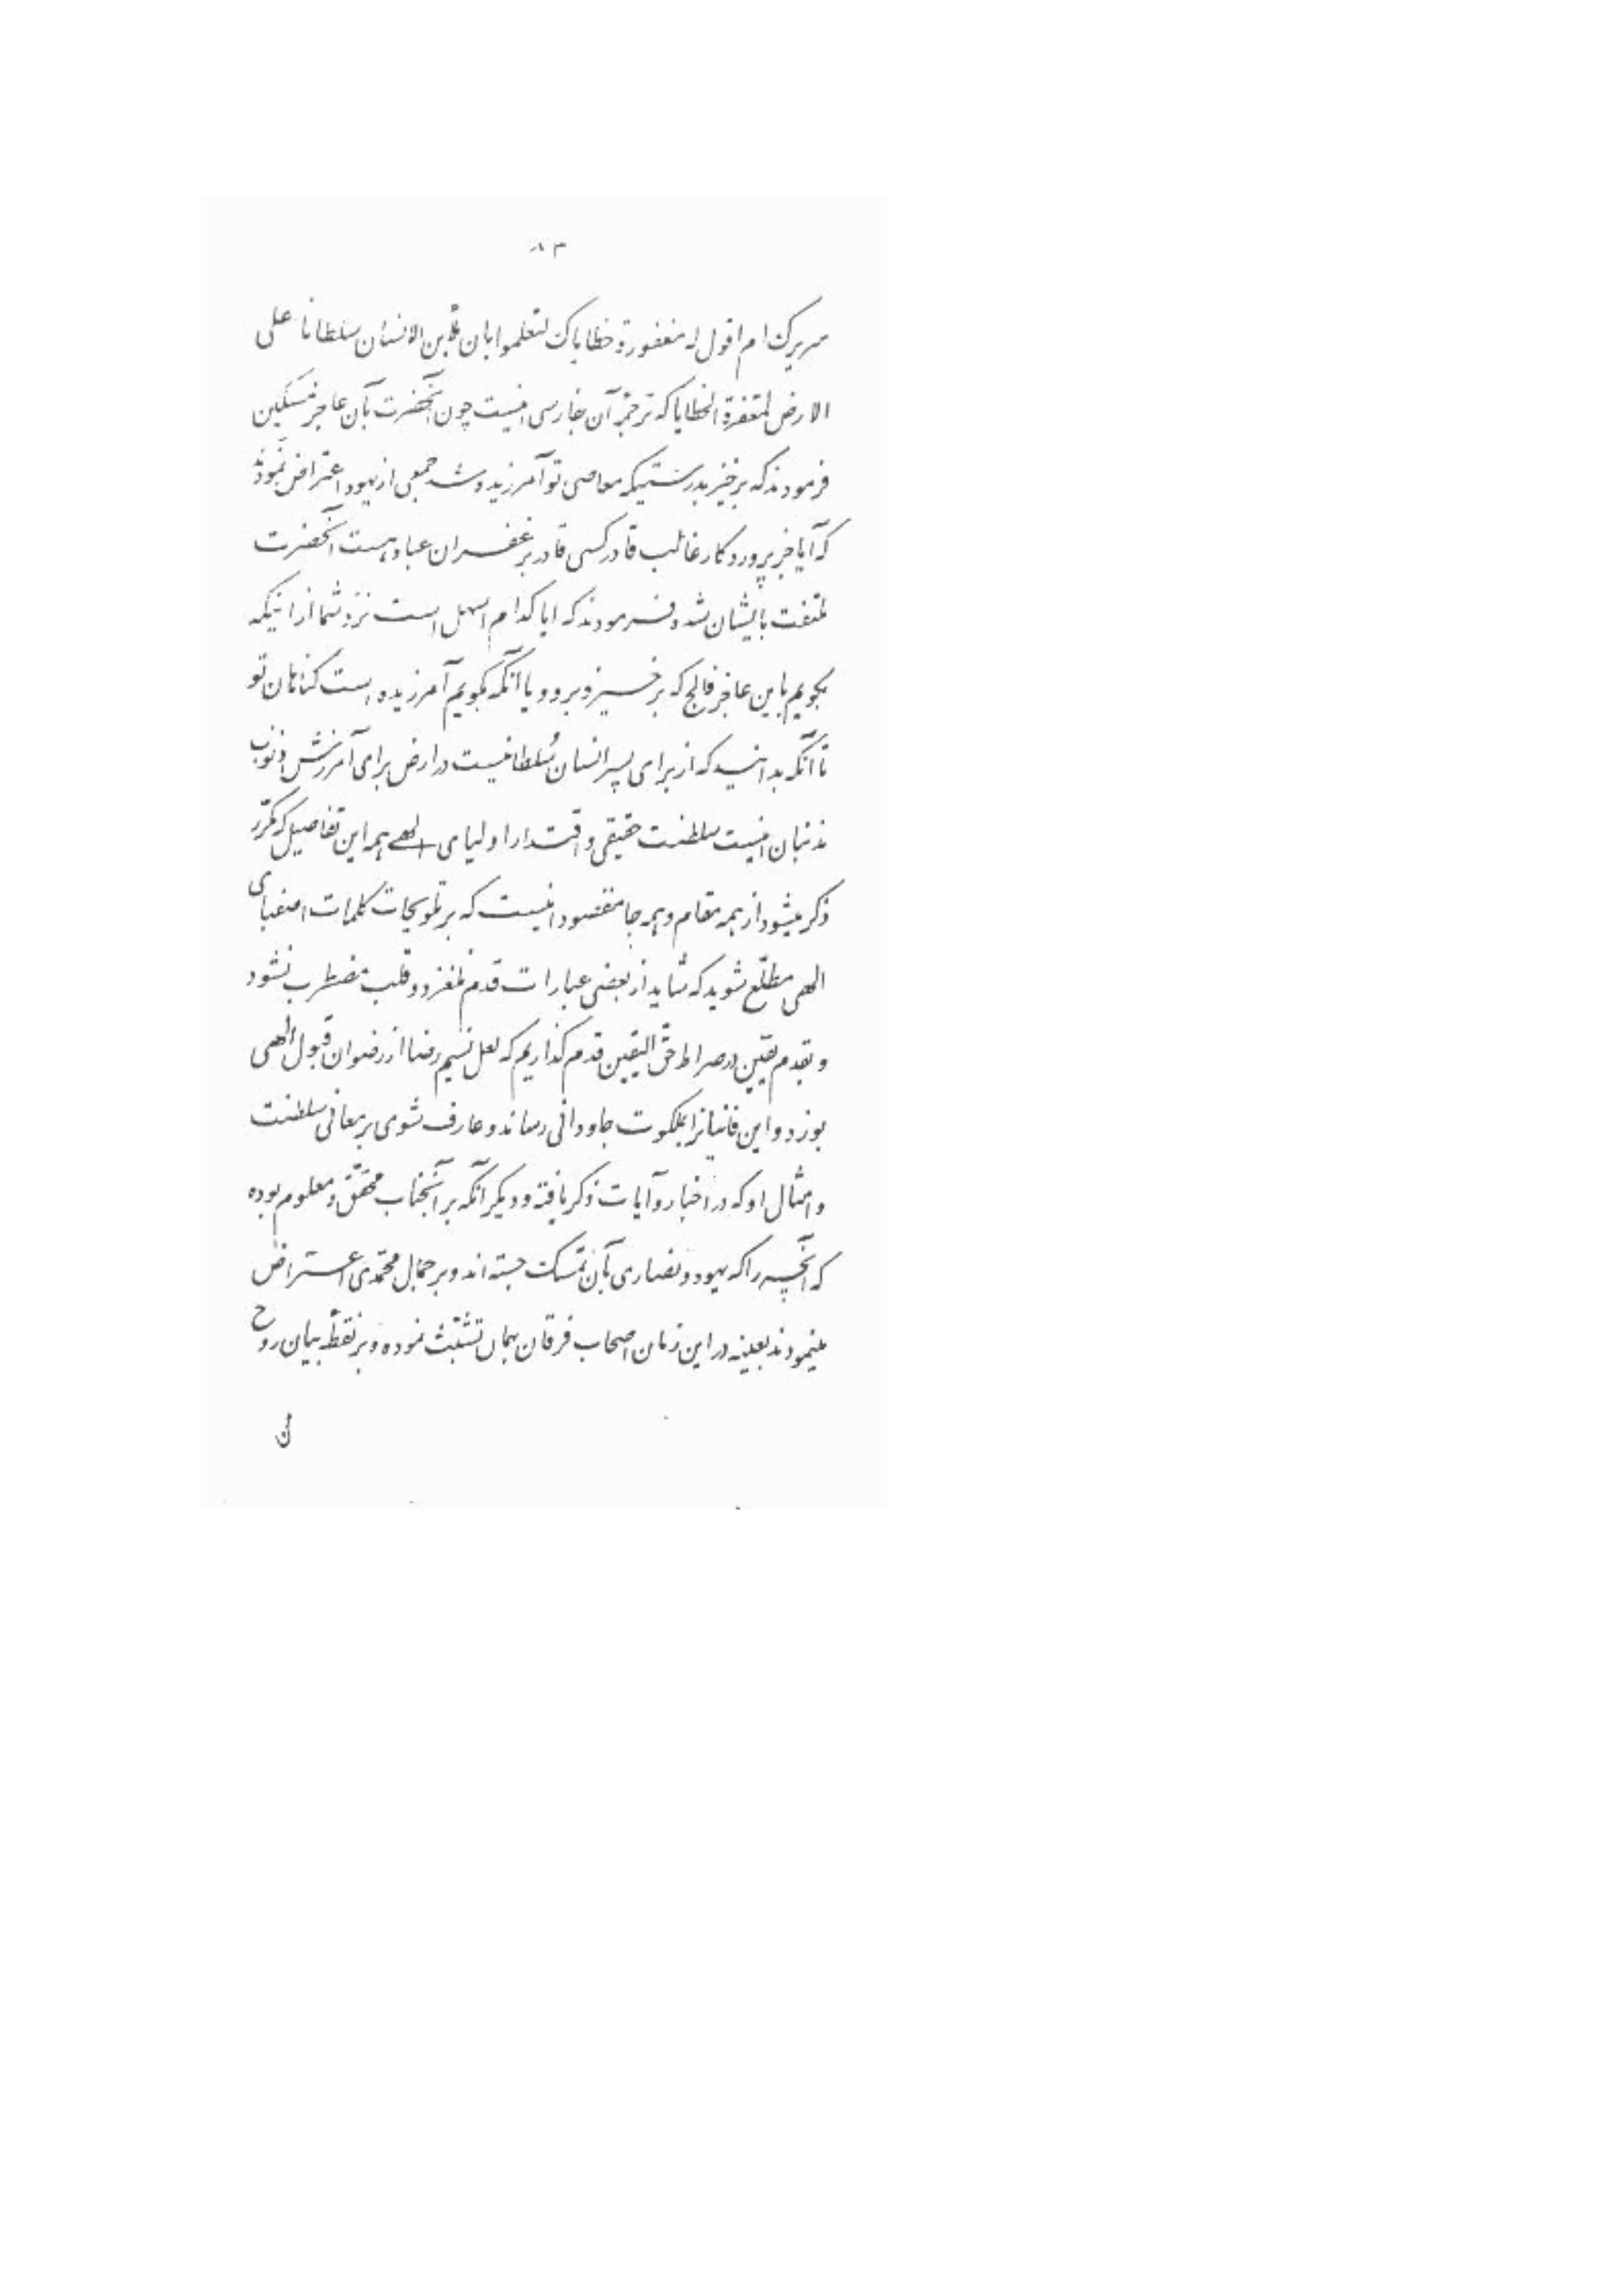 ۸۳
سریرک ام اقول له مغفورة خطایاک لتعلموا بان لابن الانسان سلطانا علی
الارض لمغفرة الخطایا که ترجمهٔ آن بفارسی اینست چون آنحضرت بآن عاجز مسکین
فرمودند که برخیز بدرستیکه معاصی تو آمرزیده شد جمعی از یهود اعتراض نمودند
که آیا جز پروردگار غالب قادر کسی قادر بر غفران عباد هست آنحضرت
ملتفت بایشان شد و فرمودند که ایا کدام اسهل است نزد شما از اینکه
بگویم باین عاجز فالج که برخیز و برو و یا آنکه بگویم آمرزیده است گناهان تو
تا آنکه بدانید که از برای پسر انسان سُلطانیست در ارض برای آمرزش ذنوب
مذنبان اینست سلطنت حقیقی و اقتدار اولیای الهی همه این تفاصیل که مکرّر
ذکر میشود از همه مقام و همه جا مقصود اینست که بر تلویحات کلمات اصفیای
الهی مطلّع شوید که شاید از بعضی عبارات قدم نلغزد و قلب مضطرب نشود
و بقدم یقین در صراط حقّ الیقین قدم گذاریم که لعل نسیم رضا از رضوان قبول الهی
بوزد و این فانیانرا بملکوت جاودانی رساند و عارف شوی بر معانی سلطنت
و امثال او که در اخبار و آیات ذکر یافته و دیگر آنکه بر آنجناب محقّق و معلوم بوده
که آنچه را که یهود و نصاری بآن تمسّک جسته اند و بر جمال محمّدی اعتراض
مینمودند بعینه در این زمان اصحاب فرقان بهمان تشبّث نموده و بر نقطهٔ بیان روح